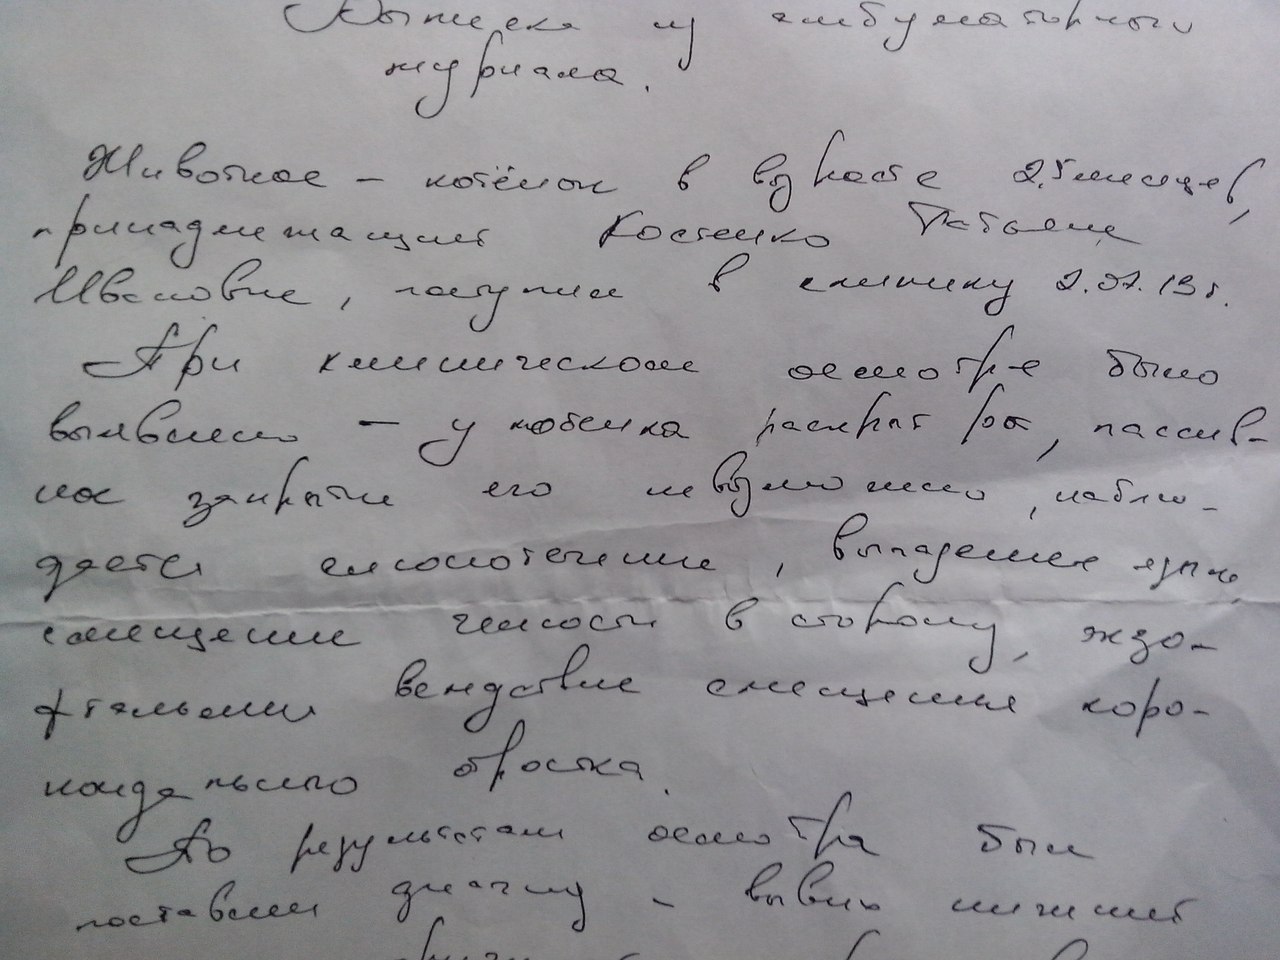 Выписка из амбулаторного
журнала.
Животное – котёнок в возрасте 2,5 месяцев,
принадлежащий Костенко Татьяне
Ивановне, поступил в клинику 2.07.13 г.
При клиническом осмотре было
выявлено – у котенка раскрыт рот, пассив-
ное закрытие его невозможно, наблю-
дается слюнотечение, выпадение языка,
смещение челюсти в сторону, экзо-
фтальмия вследствие смещения коро-
ноидального отростка.
По результатам осмотра был
поставлен диагноз – вывих нижней